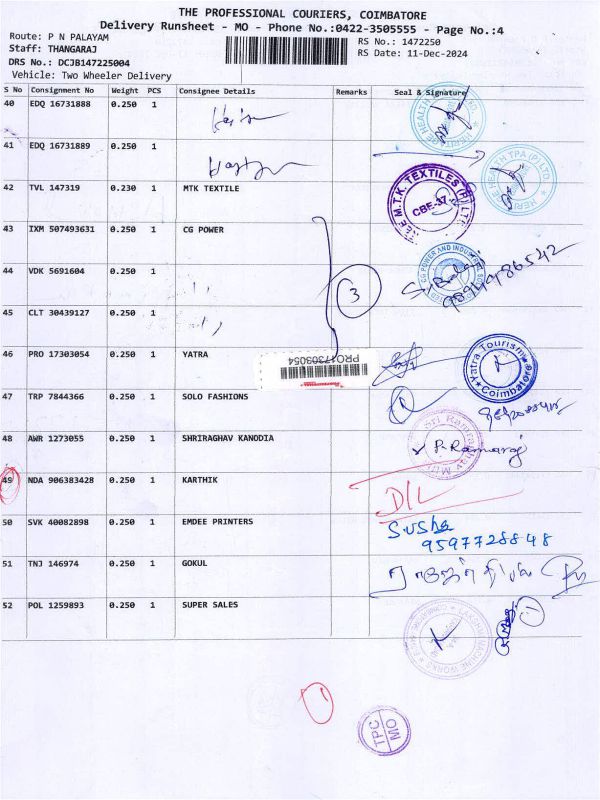 THE PROFESSIONAL COURIERS, COIMBATORE
Delivery Runsheet - MO - Phone No.:0422-3505555 - Page No.:4
Route: P N PALAYAM
RS No.: 1472250
Staff: THANGARAJ
RS Date: 11-Dec-2024
DRS No.: DCJB147225004
Vehicle: Two Wheeler Delivery
S No Consignment No Weight PCS Consignee Details Remarks Seal & Signature
40 EDQ 16731888 0.250 1
41 EDQ 16731889 0.250 1
42 TVL 147319 0.230 1 MTK TEXTILE
M.T.K. TEXTILES (P) LTD
CBE-37
43 IXM 507493631 0.250 1 CG POWER
44 VDK 5691604 0.250 1
3
CG POWER AND INDUSTRIAL
45 CLT 30439127 0.250 1
46 PRO 17303054 0.250 1 YATRA
PRO17303054
Yatra Tourism
Coimbatore
47 TRP 7844366 0.250 1 SOLO FASHIONS
48 AWR 1273055 0.250 1 SHRIRAGHAV KANODIA
P. Ramaraj
49 NDA 906383428 0.250 1 KARTHIK
D/L
50 SVK 40082898 0.250 1 EMDEE PRINTERS
Susha
9597728848
51 TNJ 146974 0.250 1 GOKUL
52 POL 1259893 0.250 1 SUPER SALES
LAKSHMI MACHINE WORKS
1
1
TPC
MO